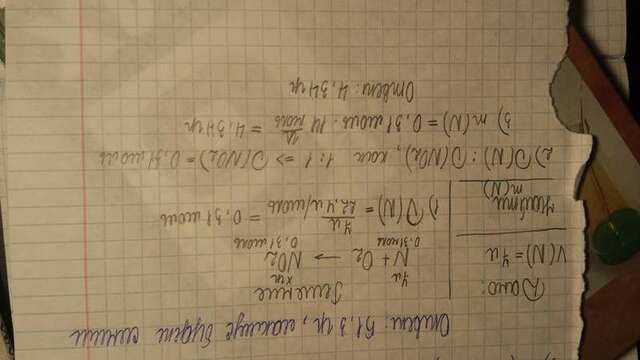 Ответ: 51,3 гр, лакмус будет синим
Дано:
V(N) = 7л
Найти
m(N)
Решение
7л хгр
N + O2 → NO2
0,31моль 0,31моль
1) ν(N) = 7л / 22,4 л/моль = 0,31 моль
2) ν(N) : ν(NO2), как 1:1 => ν(NO2) = 0,31 моль
3) m(N) = 0,31 моль · 14 гр/моль = 4,34гр
Ответ: 4,34гр